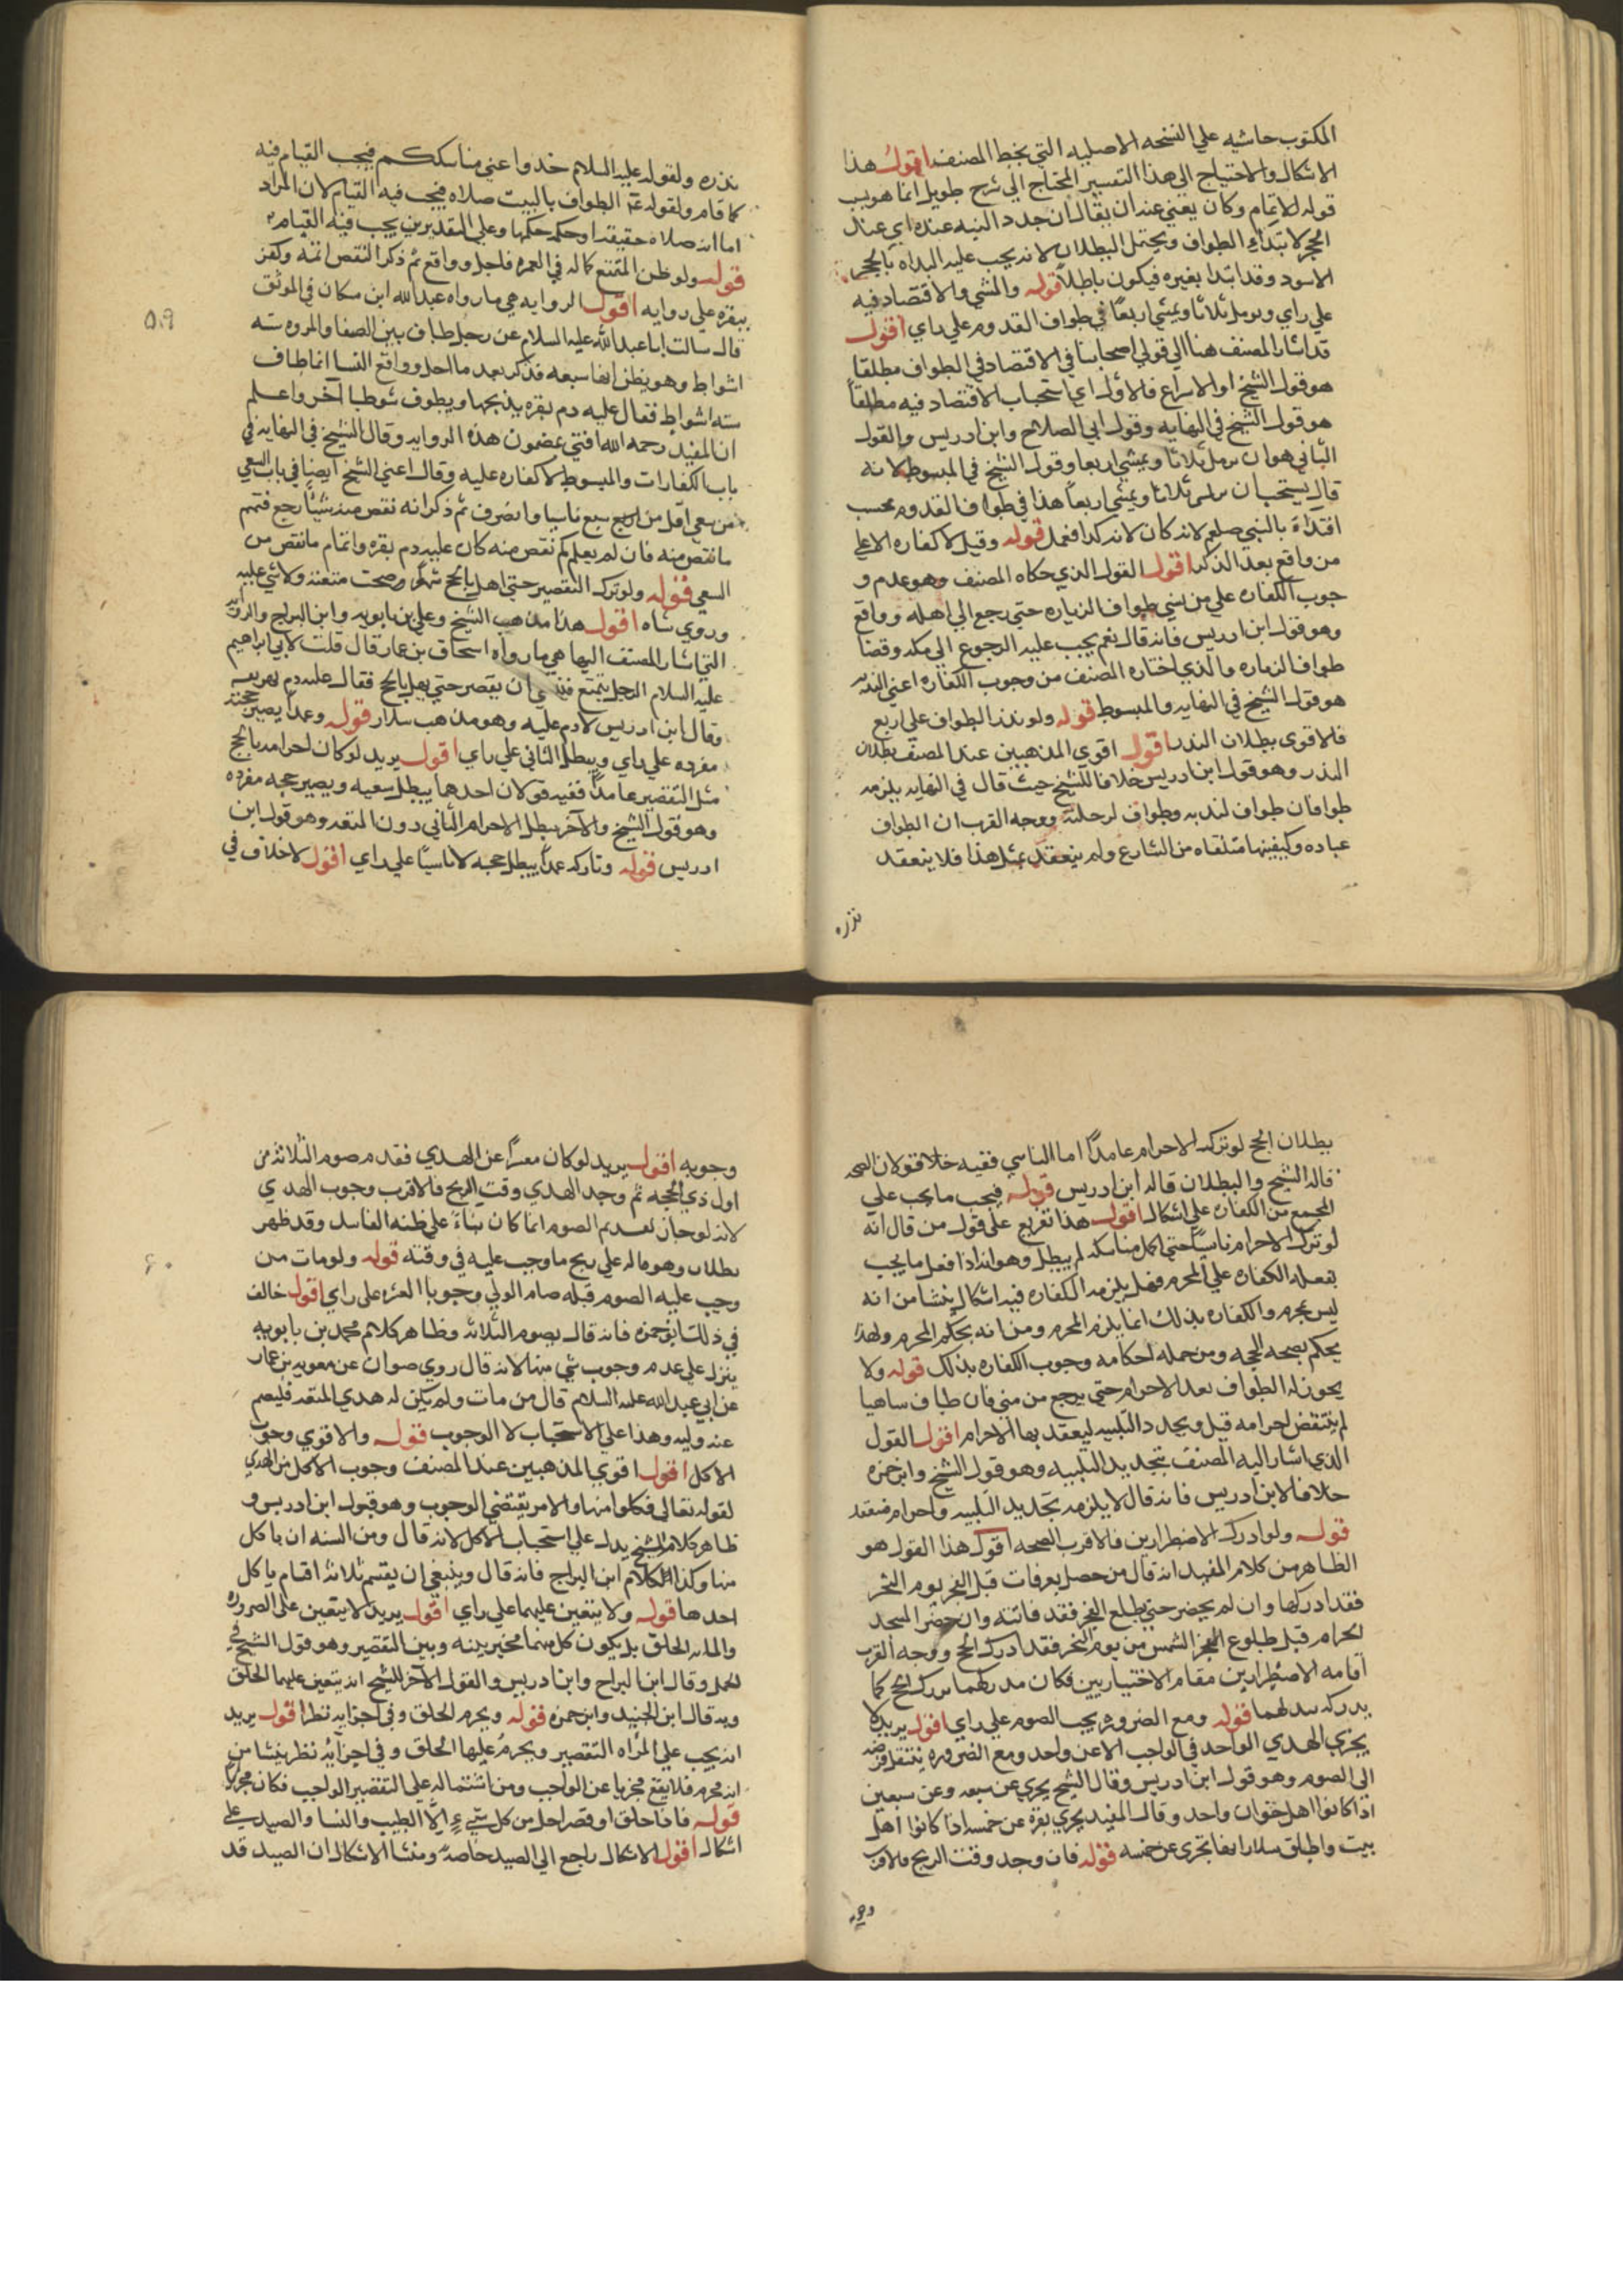 المكتوب حاشيه علي النسخه الاصليه التي بخط المصنف اقول هذا
الاشكال والاحتياج الي هذا التفسير المحتاج الي شرح طويل انما هو بسبب
قوله الاتمام وكان يغني عنه ان يقال ان جدد النيه عنده اي عند
الحجر لابتداء الطواف ويحتمل البطلان لانه يجب عليه البداه بالحجر
الاسود وقد ابتدا بغيره فيكون باطلا قوله والمشي والاقتصاد فيه
علي راي ويرمل ثلاثا ويمشي اربعا في طواف القدوم علي راي اقول
قد اشار المصنف هنا الي قولي اصحابنا في الاقتصاد في الطواف مطلقا
هو قول الشيخ او الاسراع فالاول اي استحباب الاقتصاد فيه مطلقا
هو قول الشيخ في النهايه وقول ابي الصلاح وابن ادريس والقول
الثاني هو ان يرمل ثلاثا ويمشي اربعا وقول الشيخ في المبسوط لانه
قال يستحب ان يرمل ثلاثا ويمشي اربعا هذا في طواف القدوم فحسب
اقتداء بالنبي صلعم لانه كان لانه كذا فعل قوله وقيل لا كفاره الا علي
من واقع بعد الذكر اقول القول الذي حكاه المصنف وهو عدم و
جوب الكفاره علي من نسي طواف الزياره حتي رجع الي اهله وواقع
وهو قول ابن ادريس فانه قال نعم يجب عليه الرجوع الي مكه وقضا
طواف الزياره والذي اختاره المصنف من وجوب الكفاره اعني البدنه
هو قول الشيخ في النهايه والمبسوط قوله ولو نذر الطواف علي اربع
فالاقوي بطلان النذر اقول اقوي المذهبين عند المصنف بطلان
النذر وهو قول ابن ادريس خلافا للشيخ حيث قال في النهايه يلزمه
طوافان طواف ليديه وطواف لرجليه ووجه القرب ان الطواف
عباده وكيفيتها متلقاه من الشارع ولم ينعقد بمثل هذا فلا ينعقد
نذره
نذره ولقوله عليه السلام خذوا عني مناسككم فيجب القيام فيه
كما قام ولقوله الطواف بالبيت صلاه فيجب فيه القيام لان المراد
اما انه صلاه حقيقه او حكمه حكمها وعلي التقديرين يجب فيه القيام
قوله ولو ظن المتمتع كماله في العمره فاحل وواقع ثم ذكر النقص اتمه وكفر
ببقره علي روايه اقول الروايه هي ما رواه عبد الله ابن مسكان في الموثق
٥٩
قال سالت ابا عبد الله عليه السلام عن رجل طاف بين الصفا والمروه سته
اشواط وهو يظن انها سبعه فذكر بعد ما احل وواقع النسا انما طاف
سته اشواط فقال عليه دم بقره يذبحها ويطوف شوطا آخر واعلم
ان المفيد رحمه الله افتي بمضمون هذه الروايه وقال الشيخ في النهايه في
باب الكفارات والمبسوط لا كفاره عليه وقال اعني الشيخ ايضا في باب السعي
من سعي اقل من سبع ناسيا وانصرف ثم ذكر انه نقص منه شيئا رجع فتمم
ما نقص منه فان لم يعلم كم نقص منه كان عليه دم بقره واتمام ما نقص من
السعي قوله ولو ترك التقصير حتي اهل بالحج سهوا صحت متعته ولا شي عليه
وروي شاه اقول هذا مذهب الشيخ وعلي بن بابويه وابن البراج والروايه
التي اشار المصنف اليها هي ما رواه اسحاق بن عمار قال قلت لابي ابراهيم
عليه السلام الرجل يتمتع فنسي ان يقصر حتي يهل بالحج فقال عليه دم يهريقه
وقال ابن ادريس لا دم عليه وهو مذهب سلار قوله وعمدا يصير حجته
مفرده علي راي ويبطل الثاني علي راي اقول يريد لو كان احرامه بالحج
مثل التقصير عامدا ففيه قولان احدهما يبطل سعيه ويصير حجه مفرده
وهو قول الشيخ والآخر يبطل الاحرام الثاني دون المتعه وهو قول ابن
ادريس قوله وتاركه عمدا يبطل حجه لا ناسيا علي راي اقول لا خلاف في
بطلان الحج لو ترك الاحرام عامدا اما الناسي ففيه خلاف قولان الصحه
قاله الشيخ والبطلان قاله ابن ادريس قوله فيجب ما يجب علي
المحرم من الكفاره علي اشكال اقول هذا تفريع علي قول من قال انه
لو ترك الاحرام ناسيا حتي اكمل مناسكه لم يبطل وهو انه اذا فعل ما يجب
بفعله الكفاره علي المحرم فهل يلزمه الكفاره فيه اشكال ينشا من انه
ليس بمحرم والكفاره بذلك انما يلزم المحرم ومن انه بحكم المحرم ولهذا
يحكم بصحه الحجه ومن جمله احكامه وجوب الكفاره بذلك قوله ولا
يجوز له الطواف بعد الاحرام حتي يرجع من مني فان طاف ساهيا
لم ينتقض احرامه قيل ويجدد التلبيه ليعقد بها الاحرام اقول القول
الذي اشار اليه المصنف بتجديد التلبيه وهو قول الشيخ وابن حمزه
خلافا لابن ادريس فانه قال لا يلزمه تجديد التلبيه واحرامه منعقد
قوله ولو ادرك الاضطراريين فالاقرب الصحه اقول هذا القول هو
الظاهر من كلام المفيد انه قال من حصل بعرفات قبل الفجر يوم النحر
فقد ادركها وان لم يحضر حتي يطلع الفجر فقد فاتته وان حضر المسجد
الحرام قبل طلوع الشمس من يوم النحر فقد ادرك الحج ووجه القرب
اقامه الاضطراريين مقام الاختياريين فكان مدركهما مدرك الحج كما
يدركه مدركهما قوله ومع الضروره يجب الصوم علي راي اقول يريد لا
يجزي الهدي الواحد في الواجب الا عن واحد ومع الضروره ينتقل فرضه
الي الصوم وهو قول ابن ادريس وقال الشيخ يجزي عن سبعه وعن سبعين
اذا كانوا اهل خوان واحد وقال المفيد يجزي بقره عن خمسه اذا كانوا اهل
بيت واطلق سلار انها تجزي عن خمسه قوله فان وجد وقت الذبح فالاقرب
وجوبه
وجوبه اقول يريد لو كان معسرا عن الهدي فقدم صوم الثلاثه من
اول ذي الحجه ثم وجد الهدي وقت الذبح فالاقرب وجوب الهدي
لانه لو جاز تقديم الصوم انما كان بناء علي ظنه الفاسد وقد ظهر
٦٠
بطلانه وهو ماله علي ذبح ما وجب عليه في وقته قوله ولو مات من
وجب عليه الصوم قبله صام الولي وجوبا العشره علي راي اقول خالف
في ذلك ابن حمزه فانه قال يصوم الثلاثه وظاهر كلام محمد بن بابويه
ينزل علي عدم وجوب شي منها لانه قال روي صفوان عن معويه بن عمار
عن ابي عبد الله عليه السلام قال من مات ولم يكن له هدي المتعه فليصم
عنه وليه وهذا علي الاستحباب لا الوجوب قوله والاقوي وجوب
الاكل اقول اقوي المذهبين عند المصنف وجوب الاكل من الهدي
لقوله تعالي فكلوا منها والامر يقتضي الوجوب وهو قول ابن ادريس و
ظاهر كلام الشيخ يدل علي استحباب الاكل لانه قال ومن السنه ان ياكل
منها وكذا الكلام ابن البراج فانه قال وينبغي ان يقسم ثلاثه اقسام ياكل
احدها قوله ولا يتعين عليهما علي راي اقول يريد لا يتعين علي الصروره
والملبد الحلق بل يكون كل منهما مخير بينه وبين التقصير وهو قول الشيخ في
الجمل وقال ابن البراج وابن ادريس والقول الآخر للشيخ انه يتعين عليهما الحلق
وبه قال ابن الجنيد وابن حمزه قوله ويحرم الحلق وفي اجزايه نظر اقول يريد
انه يجب علي المراه التقصير ويحرم عليها الحلق وفي اجزايه نظر ينشا من
انه محرم فلا يقع مجزيا عن الواجب ومن اشتماله علي التقصير الواجب فكان مجزيا
قوله فاذا حلق او قصر احل من كل شيء الا الطيب والنسا والصيد علي
اشكال اقول الاشكال راجع الي الصيد خاصه ومنشا الاشكال ان الصيد قد